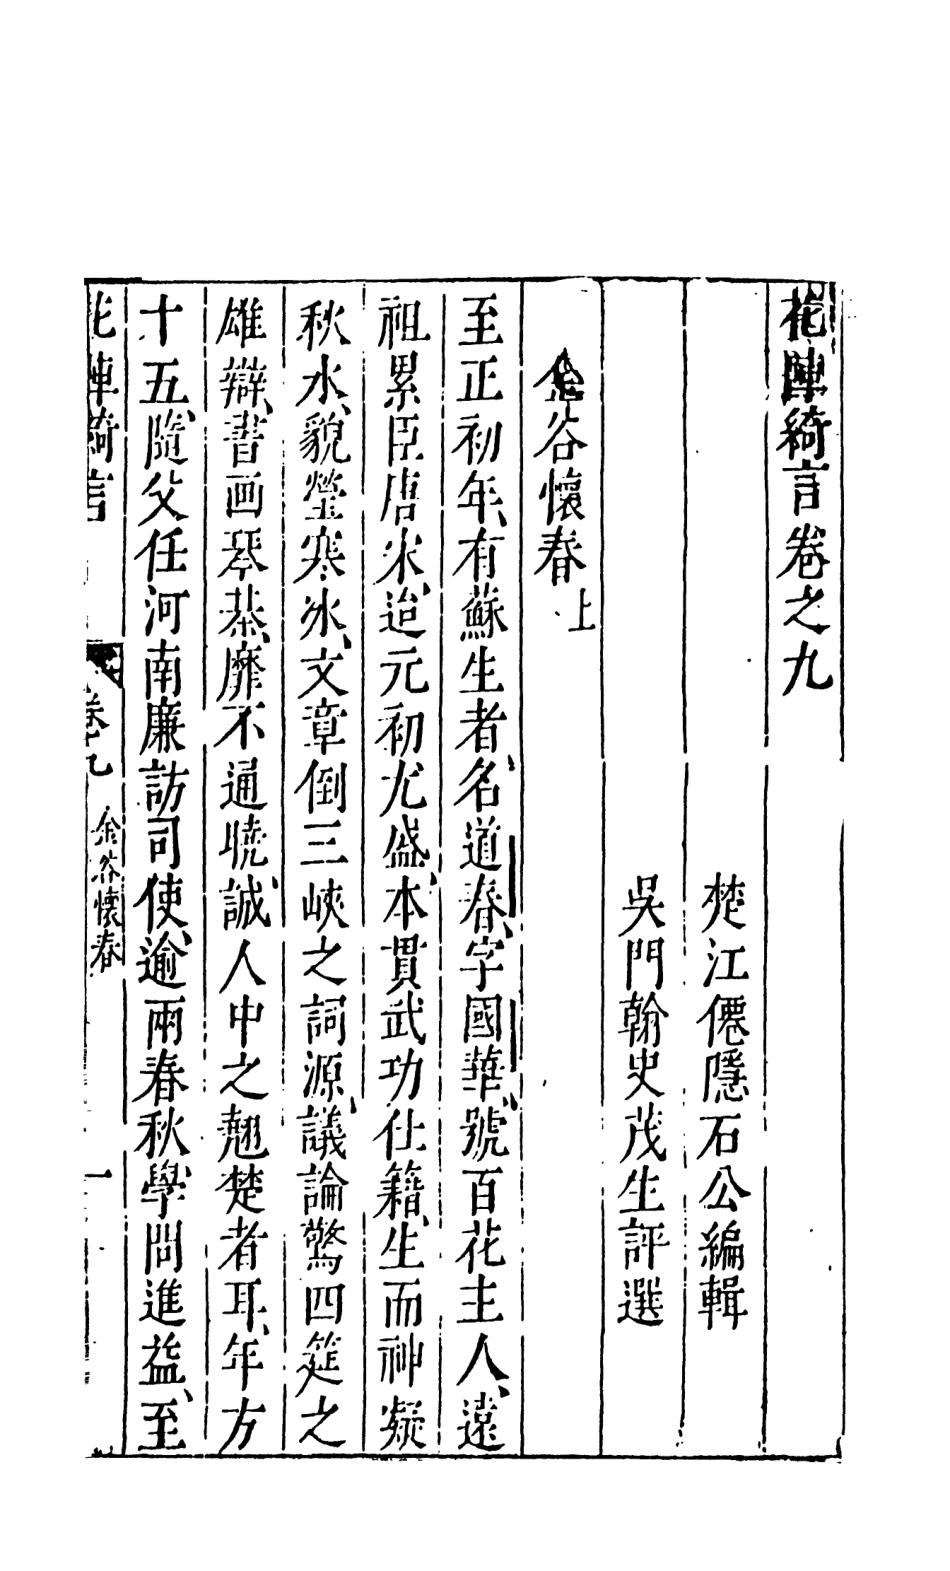 花陣綺言卷之九
楚江僊隱石公編輯
吳門翰史茂生評選
金谷懷春上
至正初年、有蘇生者、名道春、字國華、號百花主人、遠
祖累臣唐宋、迨元初尤盛、本貫武功仕籍、生而神凝
秋水、貌瑩寒冰、文章倒三峽之詞源、議論驚四筵之
雄辯、書画琴棊、靡不通曉、誠人中之翹楚者耳、年方
十五、隨父任河南廉訪司使、逾兩春秋、學問進益、至
花陣綺言 卷九 金谷懷春 一